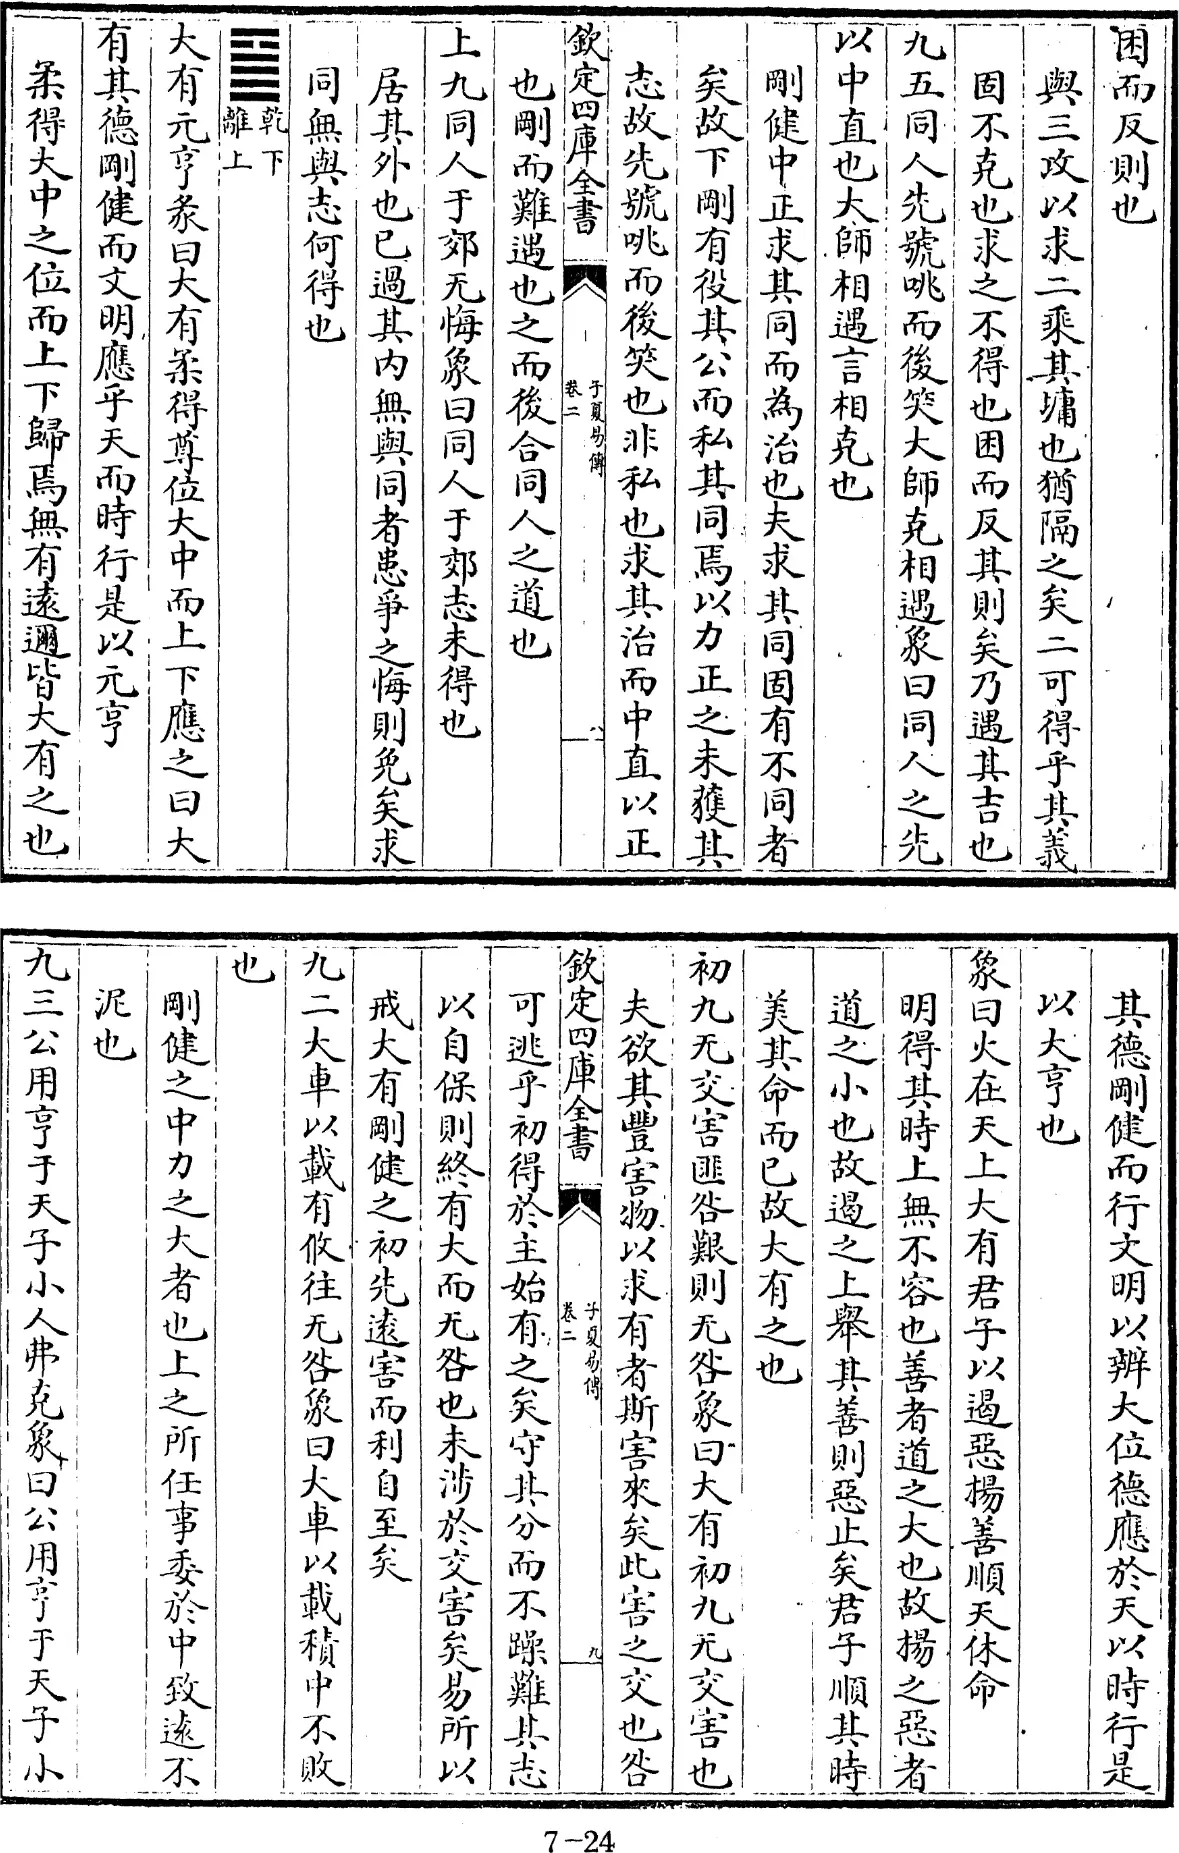 困而反則也
與三攻以求二乘其墉也猶隔之矣二可得乎其義
固不克也求之不得也困而反其則矣乃遇其吉也
九五同人先號咷而後笑大師克相遇象曰同人之先
以中直也大師相遇言相克也
剛健中正求其同而為治也夫求其同固有不同者
矣故下剛有役其公而私其同焉以力正之未獲其
志故先號咷而後笑也非私也求其治而中直以正
欽定四庫全書
子夏易傳
卷二
八
也剛而難遇也之而後合同人之道也
上九同人于郊无悔象曰同人于郊志未得也
居其外也已過其内無與同者患爭之悔則免矣求
同無與志何得也
乾下
離上
大有元亨彖曰大有柔得尊位大中而上下應之曰大
有其德剛健而文明應乎天而時行是以元亨
柔得大中之位而上下歸焉無有遠邇皆大有之也
其德剛健而行文明以辨大位德應於天以時行是
以大亨也
象曰火在天上大有君子以遏惡揚善順天休命
明得其時上無不容也善者道之大也故揚之惡者
道之小也故遏之上舉其善則惡止矣君子順其時
美其命而已故大有之也
初九无交害匪咎艱則无咎象曰大有初九无交害也
夫欲其豐害物以求有者斯害來矣此害之交也咎
欽定四庫全書
子夏易傳
卷二
九
可逃乎初得於主始有之矣守其分而不躁難其志
以自保則終有大而无咎也未涉於交害矣易所以
戒大有剛健之初先遠害而利自至矣
九二大車以載有攸往无咎象曰大車以載積中不敗
也
剛健之中力之大者也上之所任事委於中致遠不
泥也
九三公用亨于天子小人弗克象曰公用亨于天子小
7-24